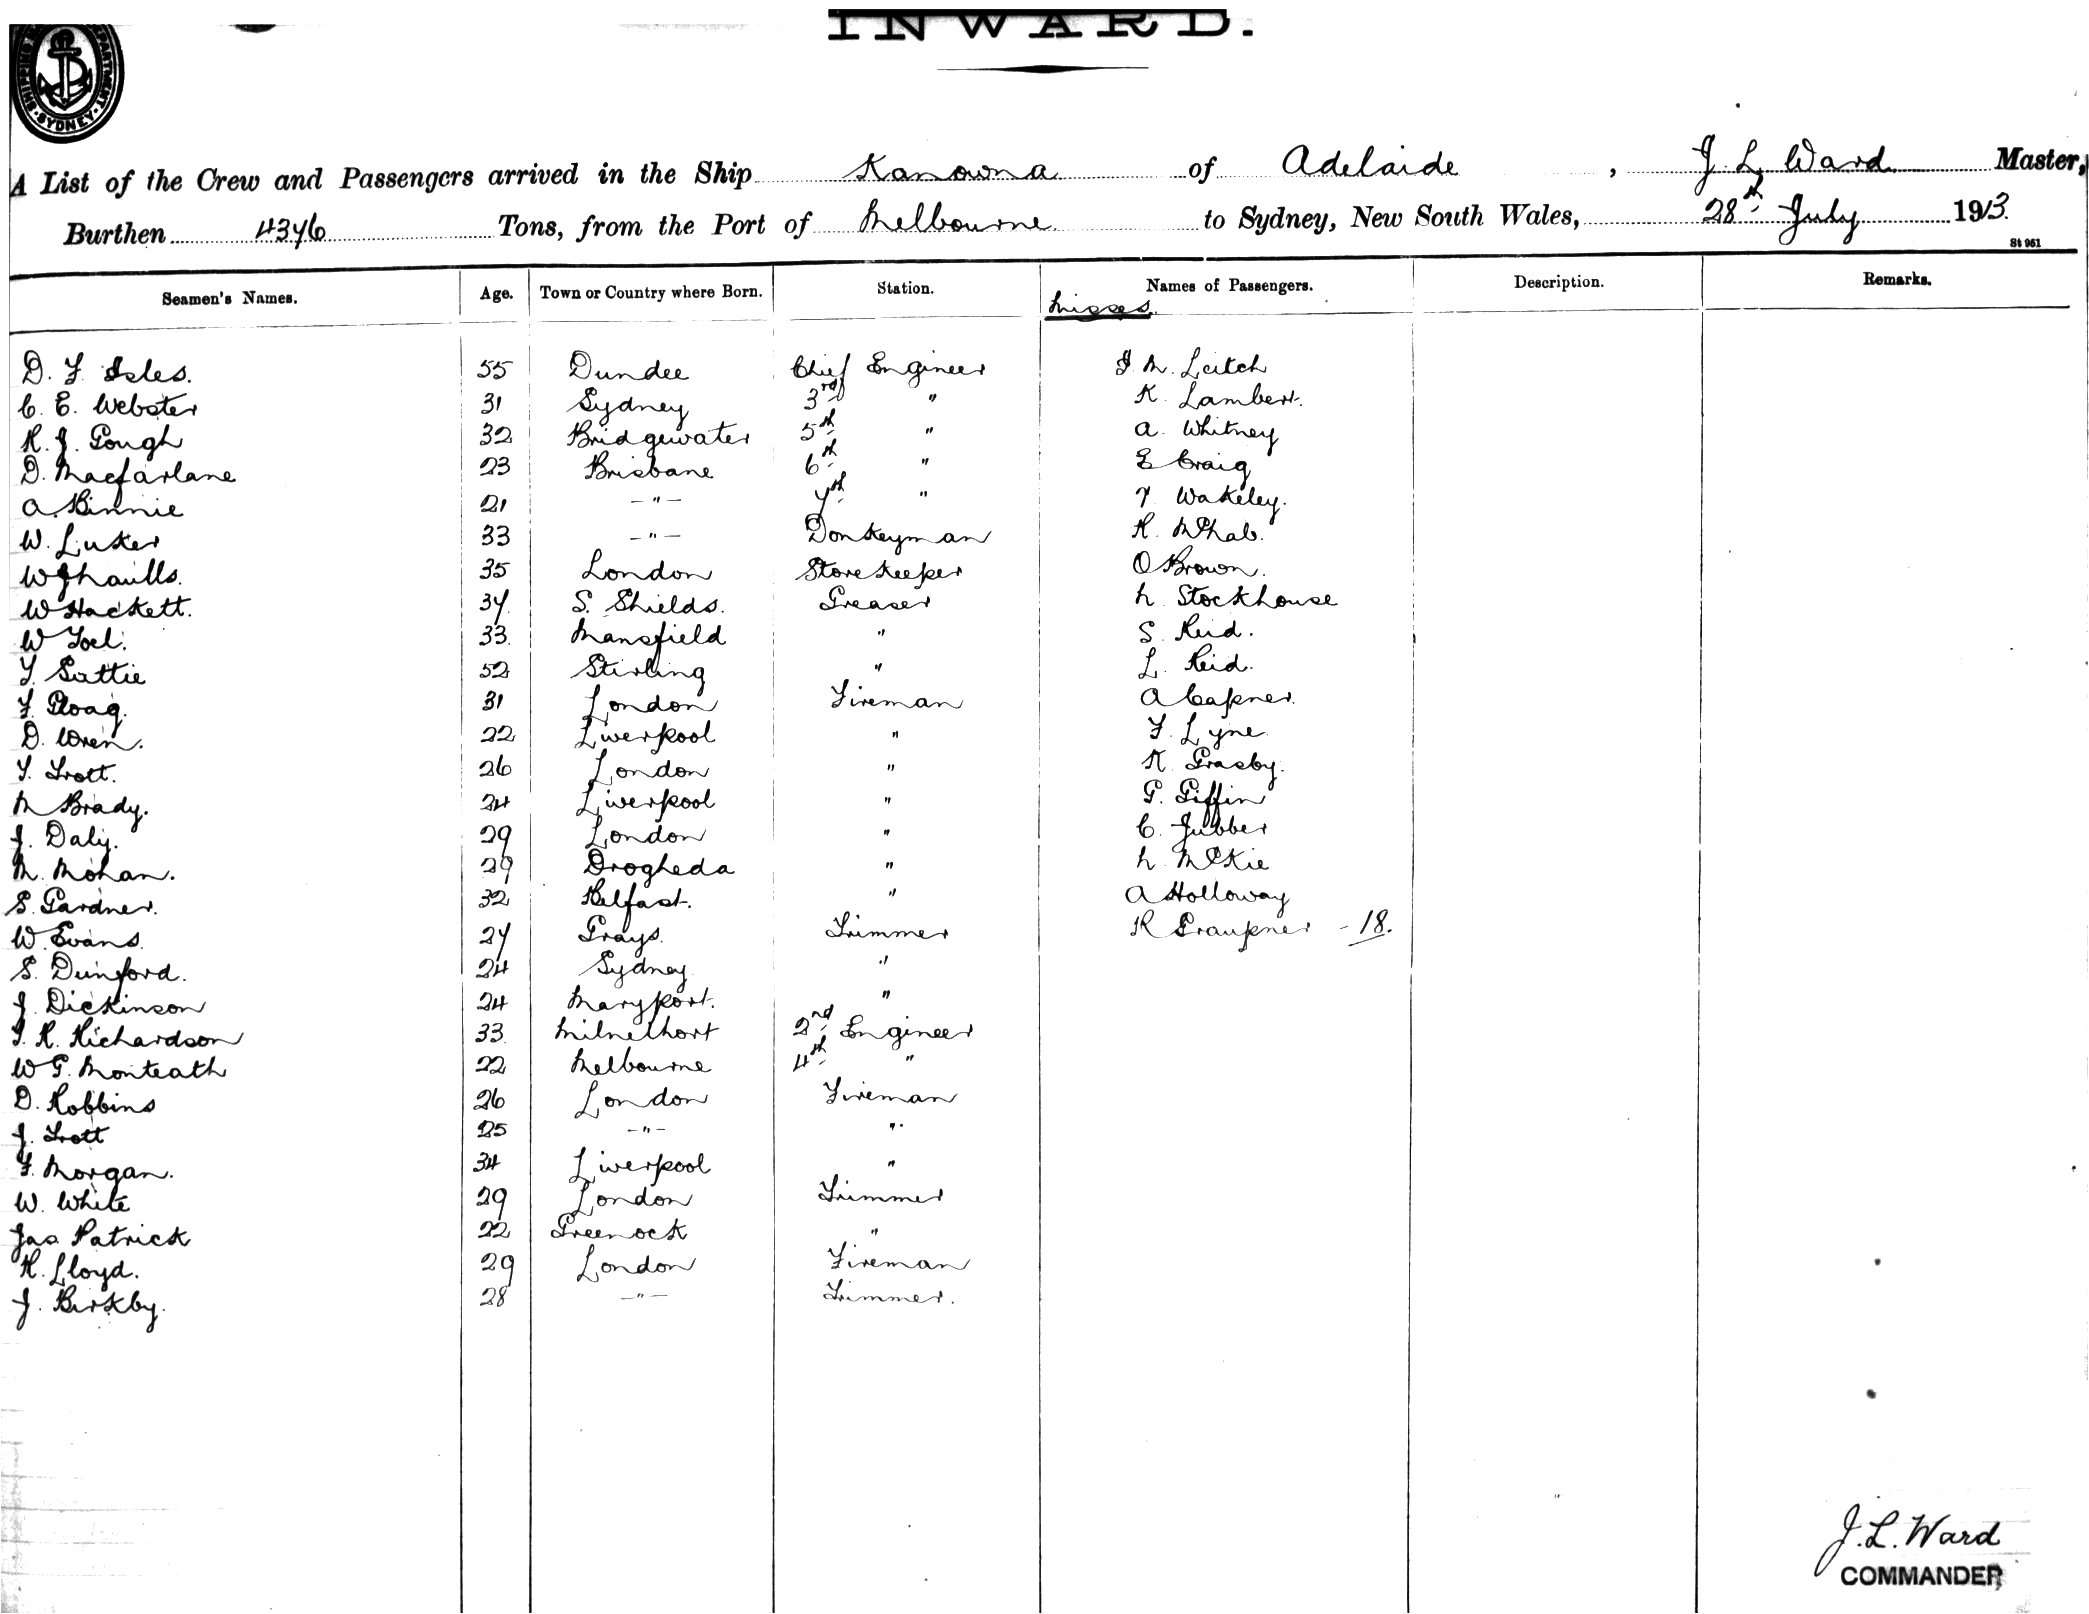 INWARD.
SHIPPING DEPARTMENT SYDNEY
A List of the Crew and Passengers arrived in the Ship Kanowna of Adelaide, J. L. Ward Master,
Burthen 4346 Tons, from the Port of Melbourne to Sydney, New South Wales, 28th July 1913.
St 961
Seamen's Names. Age. Town or Country where Born. Station. Names of Passengers. Description. Remarks.
Misses
D. F. Isles. 55 Dundee Chief Engineer J. M. Leitch
C. E. Webster 31 Sydney 3rd " K. Lambert.
R. J. Gough 32 Bridgewater 5th " A. Whitney
D. Macfarlane 23 Brisbane 6th " E Craig
A. Binnie 21 -"- 7th " Wakeley.
W. Luker 33 -"- Donkeyman R. McNab.
W 35 London Storekeeper O Brown.
W Hackett. 37 S. Shields. Greaser N. Stockhouse
W 33 Mansfield " S. Reid.
T. 52 Stirling " L. Reid.
F. 31 London Fireman A Capner.
D. Wren. 22 Liverpool " F. Lyne
T. Trott. 26 London " K Grasby.
M Brady. 24 Liverpool " G. Giffin
J. Daly. 29 London " C. Jubber
M. Mohan. 29 Drogheda " N. McKie
S. Gardner. 32 Belfast. " A Holloway
W. Evans. 27 Grays. Trimmer R Graupner - 18.
S. Dunford. 24 Sydney "
J. Dickinson 24 Maryport. "
J. R. Richardson 33 Milnethort 2nd Engineer
W G. Monteath 22 Melbourne 4th "
D. Robbins 26 London Fireman
J. Trott 25 -"- "
F. Morgan. 34 Liverpool "
W. White 29 London Trimmer
Jas Patrick 22 Greenock "
R. Lloyd. 29 London Fireman
J. Birkby. 28 -"- Trimmer.
J. L. Ward
COMMANDER